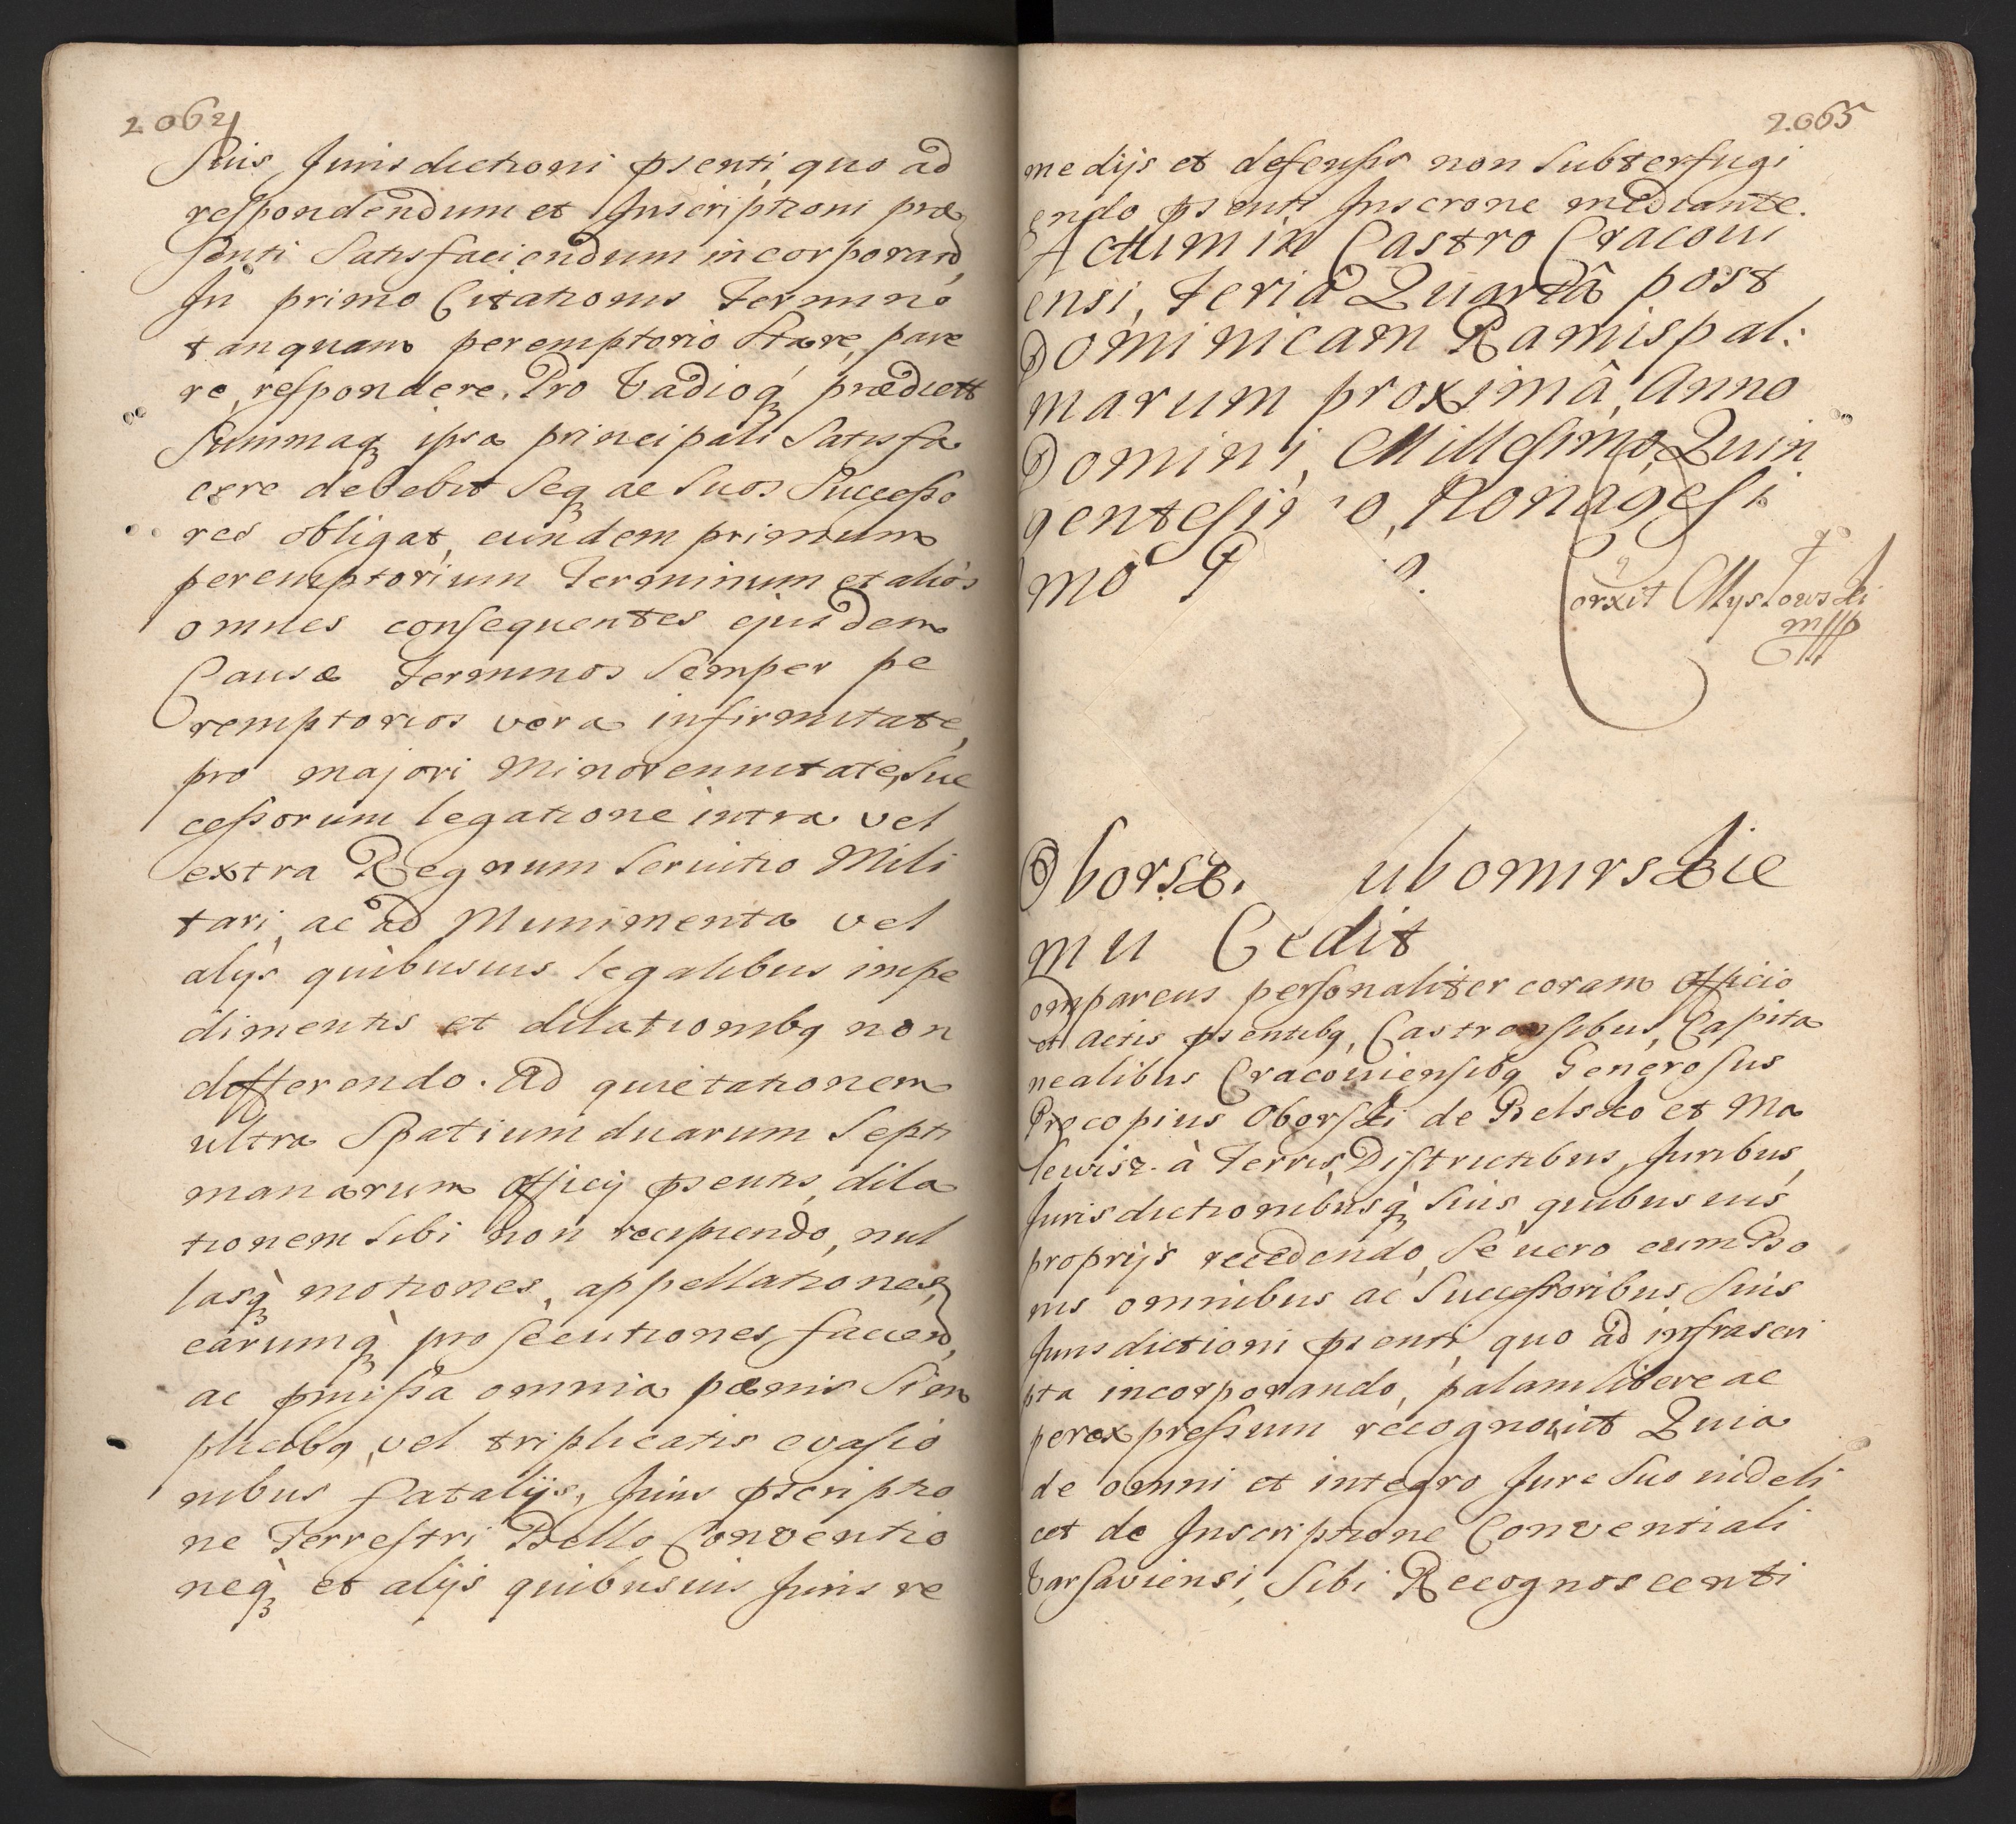 2064
Suis, Jurisdictioni pśenti, quo ad
respondendum et Inscriptioni præ
senti Satisfaciendum incorporand,
In primo Citationis Termino
tanquam peremptorio Stare, pare
re, respondere, Pro Vadioq prædicto
Summaq ipsa principali Satisfa
cere debebit Seq ac Suos Successo
res obligat, eundem primum
peremptorium Terminum et alios
omnes consequentes ejusdem
Causæ Terminos Semper pe
remptorios vera infirmitate,
pro majori Minorennitate, Suc
cessorum legatione intra vel
extra Regnum Servitio Mili
tari, ac ad Munimenta vel
alijs quibusvis legalibus impe
dimentis et dilationibq non
differendo. Ad quietationem
ultra Spatium duarum Septi
manarum officij pśentis, dila
tionem Sibi non recipiendo, nul
lasq motiones, appellationes,
earumq prosecutiones facien,
ac pmissa omnia pœnis Sim
plicibq, vel triplicatis evasio
nibus fatalijs, Juris pscriptio
ne Terrestri Bello Conventio
neq et alijs quibusvis Juris re
2065
medijs et defensis non Subterfugi
endo pśenti Inscrone mediante.
Actum in Castro Cracovi
ensi, Feriâ Quartâ post
Dominicam Ramispal:
marum proximâ, Anno
Domini, Millesimo, Quin
gentesi o, Nonagesi
mo P o.
Corxit Mysłowski
mpp
Oborsk. ubomirskie
mu Cedit
omparens personaliter coram officio
et Actis pśentibq, Castrensibus, Capita
nealibus Cracoviensibq Generosus
Procopius Oborski de Belsko et Ma
lewisz. à Terris, Districtibus, Juribus,
Jurisdictionibusq Suis quibusvis
proprijs recedendo, Se vero cum Bo
nis omnibus ac Successoribus Suis
Jurisdictioni pśenti, quo ad infrascri
pta incorporando, palam libere ac
per expressum recognovit Quia
de omni et integro Jure Suo videli
cet de Inscriptione Conventiali
Varsaviensi, Sibi Recognoscenti